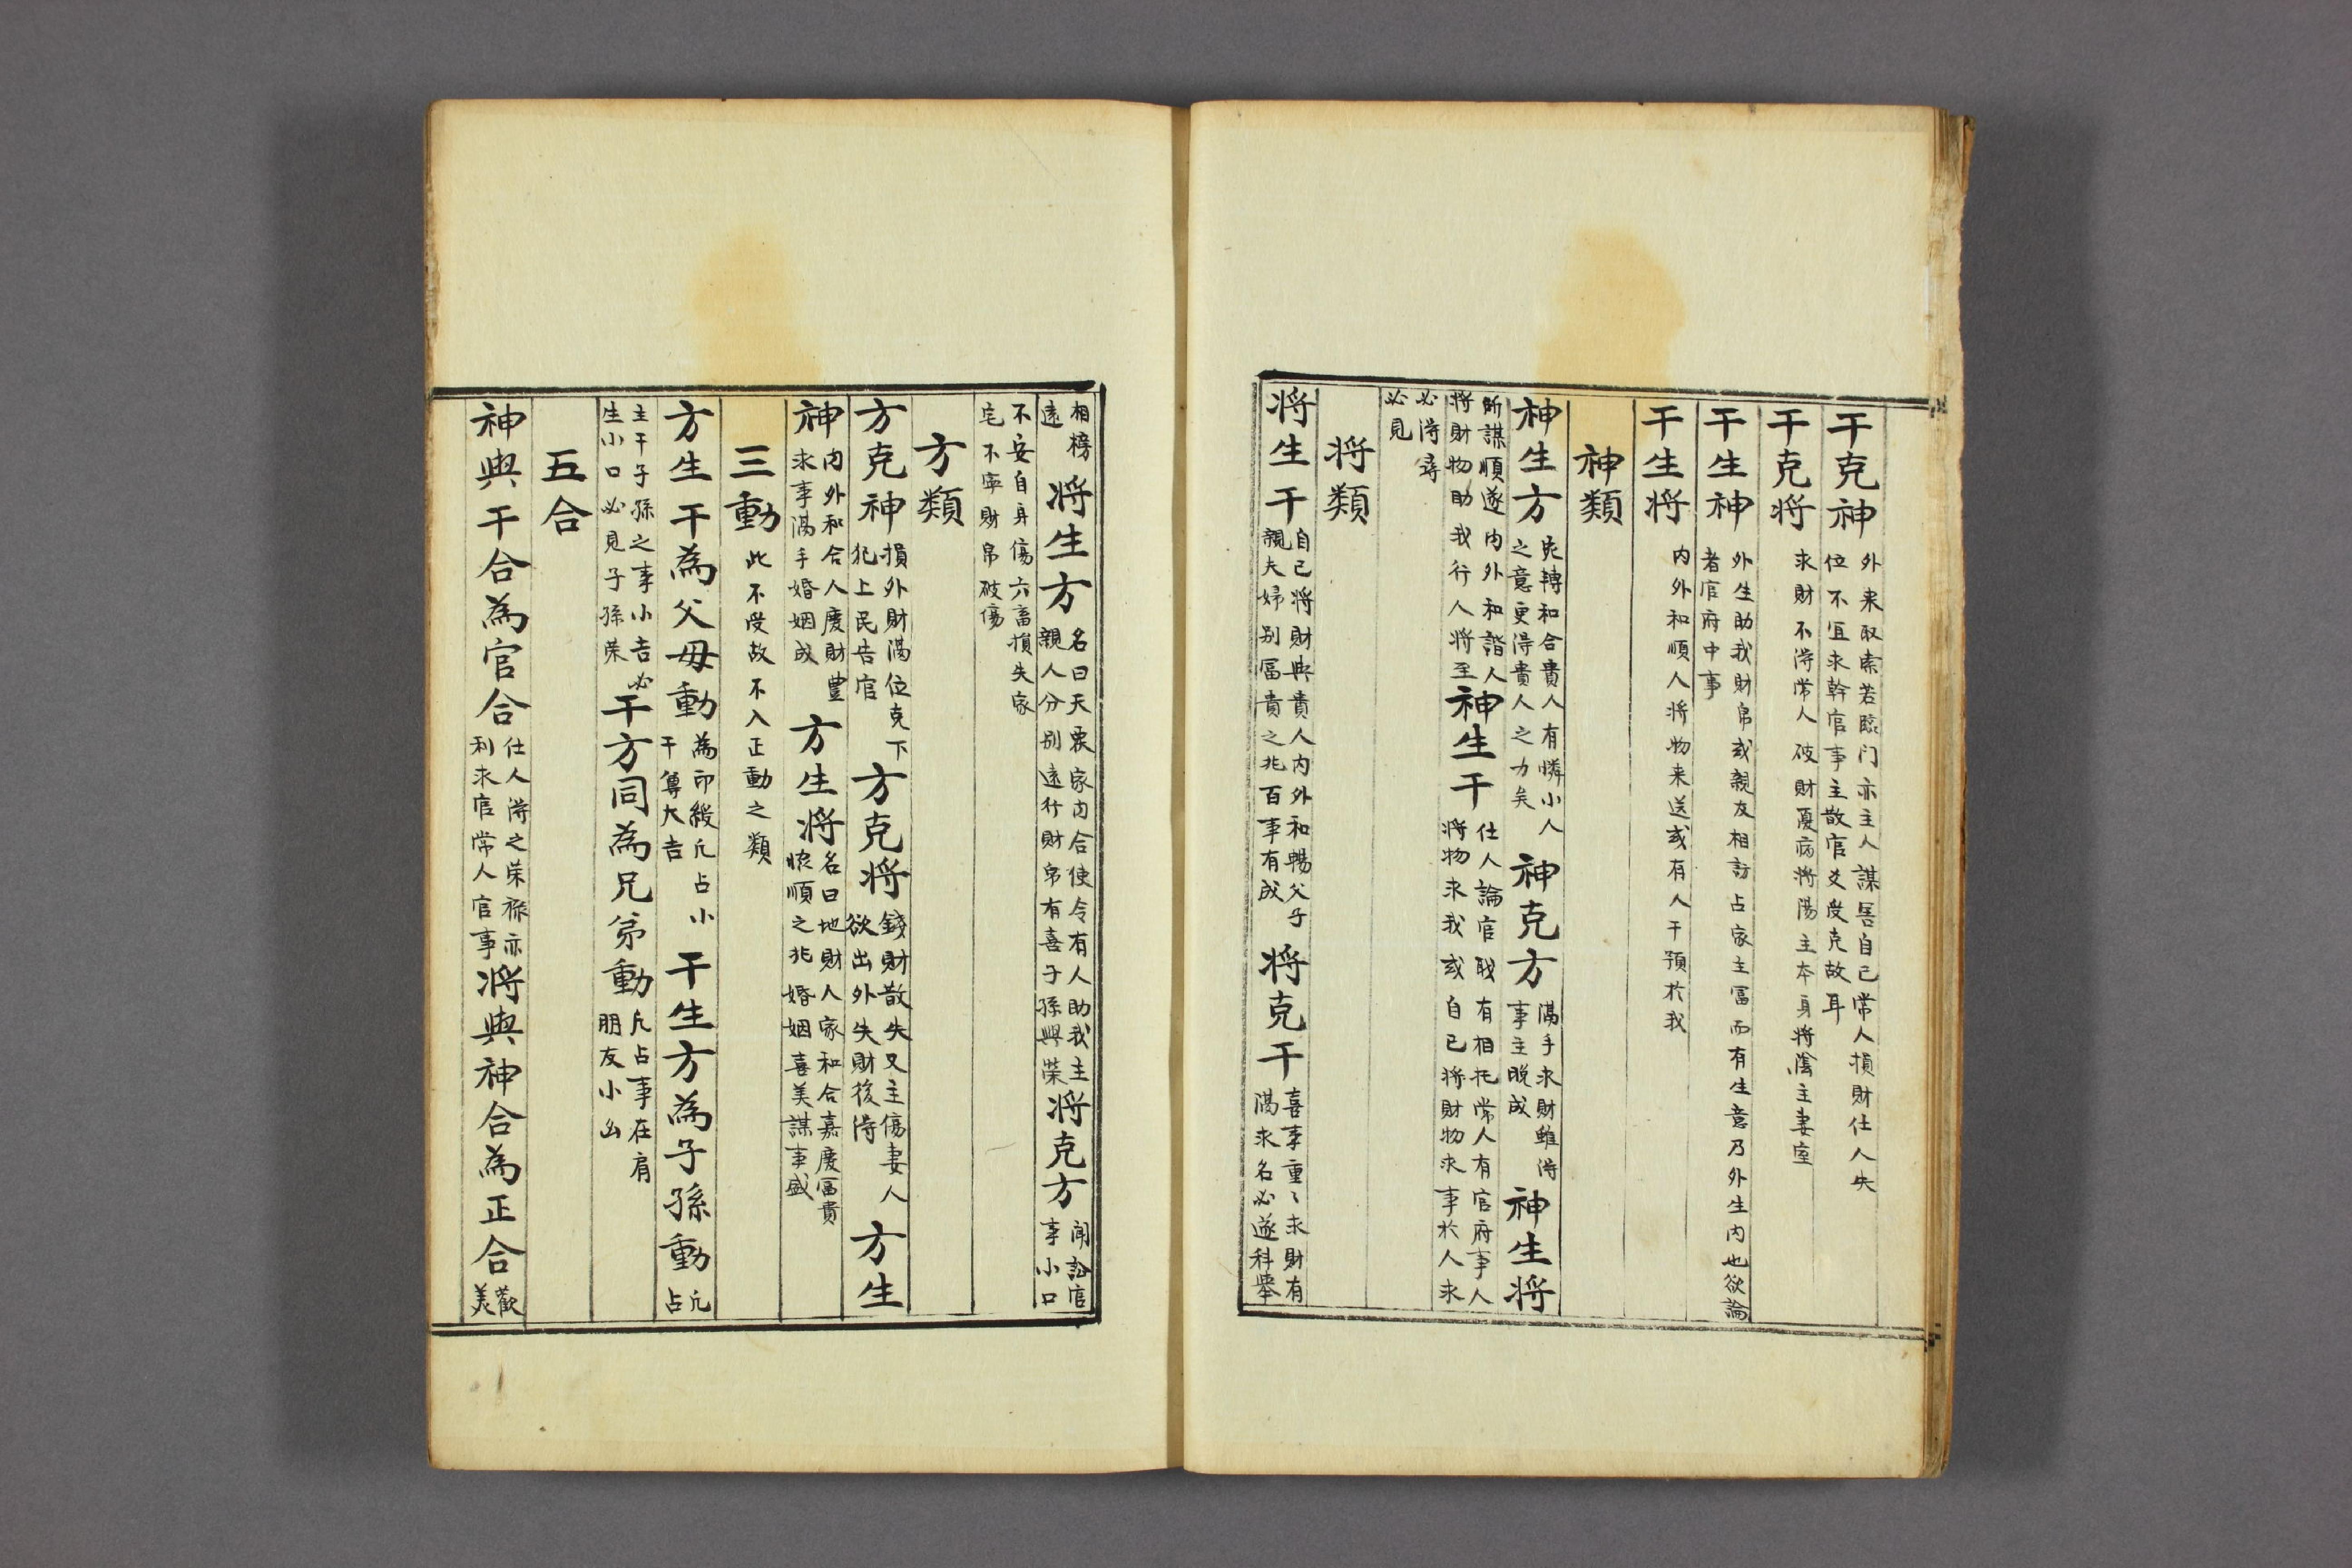 干克神 外来取索若臨门亦主人謀害自己常人損財仕人失位不宜求幹官事主散官爻受克故耳
干克将 求財不淂常人破財憂病将陽主本身将陰主妻室
干生神 外生助我財帛或親友相訪占家主冨而有生意乃外生内也欲論者官府中事
干生将 内外和順人将物来送或有人干預於我
神類
神生方 宛轉和合貴人有憐小人之意更得貴人之力矣 神克方 隔手求財雖淂事主晚成 神生将
所謀順遂内外和諧人将財物助我行人将至 神生干 仕人論官戝有相托常人有官府事人将物求我或自己将財物求事於人求
必淂尋必見
将類
将生干 自己将財與貴人内外和暢父子親夫婦别冨貴之兆百事有成 将克干 喜事重〻求財有隔求名必遂科舉
相榜遠 将生方 名曰天覆家内合使令有人助我主親人分别遠行財帛有喜子孫興榮 将克方 闹訟官事小口
不安自身傷六畜損失家宅不寧財帛破傷
方類
方克神 損外財隔位克下犯上民告官 方克将 錢財散失又主傷妻人欲出外失財後淂 方生
神 内外和合人慶財豊求事隔手婚姻成 方生将 名曰地財人家和合嘉慶冨貴恱順之兆婚姻喜美謀事盛
三動 此不受故不入正動之類
方生干為父母動 為印綬凢占小干尊大吉 干生方為子孫動 凢占
主干子孫之事小吉必生小口必見子孫榮 干方同為兄弟動 凢占事在肩朋友小凶
五合
神與干合為官合 仕人淂之榮祿亦利求官常人官事 将與神合為正合 歡美